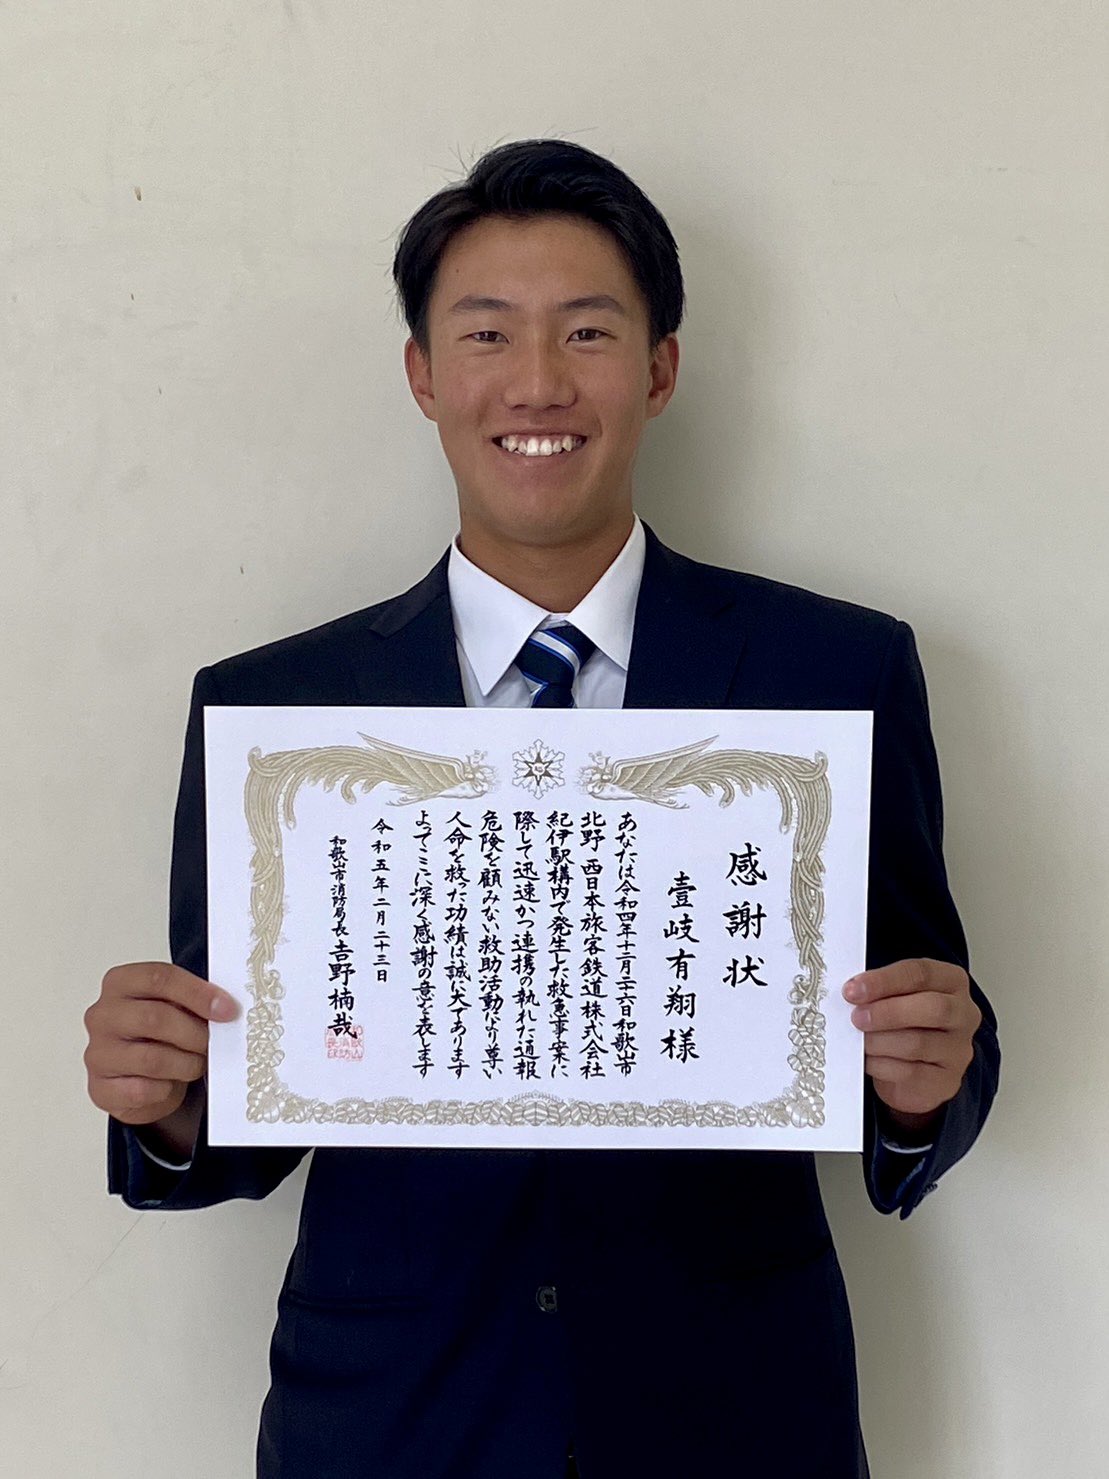 感謝状
壹岐有翔様
あなたは令和四年十二月二十六日和歌山市
北野 西日本旅客鉄道株式会社
紀伊駅構内で発生した救急事案に
際して迅速かつ連携の執れた通報
危険を顧みない救助活動により尊い
人命を救った功績は誠に大であります
よってここに深く感謝の意を表します
令和五年二月二十三日
和歌山市消防局長 吉野楠哉